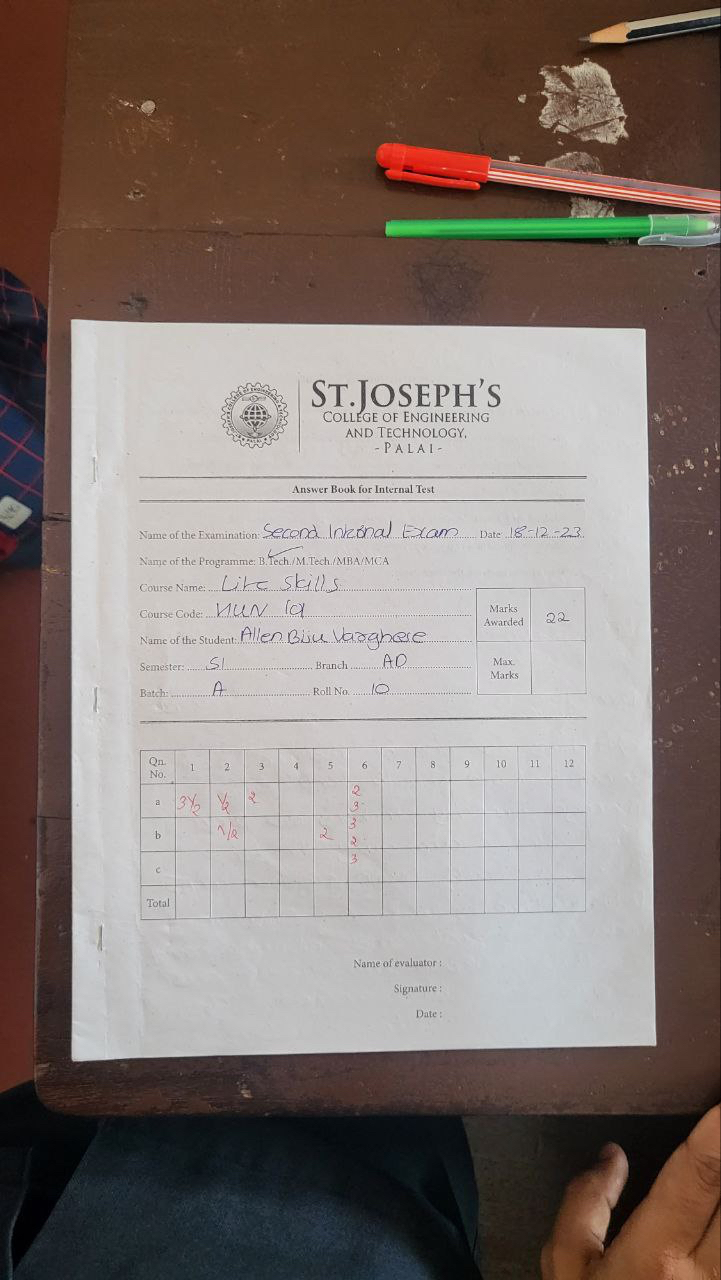 ST.JOSEPH'S
COLLEGE OF ENGINEERING
AND TECHNOLOGY,
-PALAI-
Answer Book for Internal Test
Name of the Examination: Second Internal Exam Date 18-12-23
Name of the Programme: B.Tech./M.Tech./MBA/MCA
Course Name: Life Skills
Course Code: HUN 101
Marks Awarded 22
Name of the Student: Allen Biju Varghese
Semester: S1 Branch AD
Max. Marks
Batch: A Roll No. 10
Qn. No. 1 2 3 4 5 6 7 8 9 10 11 12
a 3½ ½ 2 2 3
b 1/2 2 3 2
c 3
Total
Name of evaluator :
Signature :
Date :